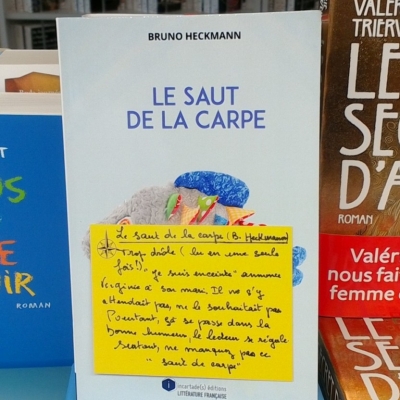 BRUNO HECKMANN
LE SAUT
DE LA CARPE
Le saut de la carpe (B. Heckmann)
Trop drôle (lu en une seule
fois!) "Je suis enceinte" annonce
Virginie à son mari. Il ne s'y
attendait pas, ne le souhaitait pas
Pourtant, ça se passe dans la
bonne humeur, le lecteur se régale
Surtout, ne manquez pas ce
"saut de carpe"
incartade(s) éditions
LITTÉRATURE FRANÇAISE
T
US
E
IR
ROMAN
VALÉR
TRIERV
LE
SE
D'A
ROMAN
Valér
nous fai
femme
LE